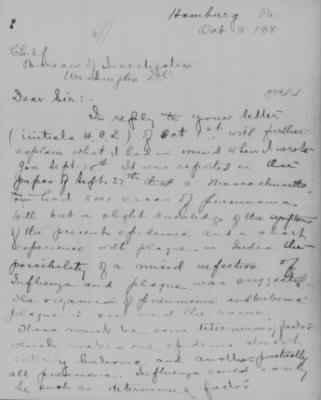 Hamburg Pa.
Oct 8, 1918
Chief
Bureau of Investigation
Washington D.C.
over
Dear Sir:
In reply to your letter
(initials H, B, L) of Oct 1st will further
explain what I had in mind when I wrote
you Sept. 28th. It was reported in the
papers of Sept. 27th that a Massachusetts
had 500 cases of pneumonia.
With but a slight knowledge of the symptoms
of the present epidemic and a short
experience with plague in India the
possibility of a mixed infection of
Influenza and plague was suggested.
The organism of pneumonic and bubonic
plague is one and the same.
There must be some determining factor
which makes one epidemic almost
entirely bubonic and another practically
all pneumonic. Influenza could easily
be such a determining factor